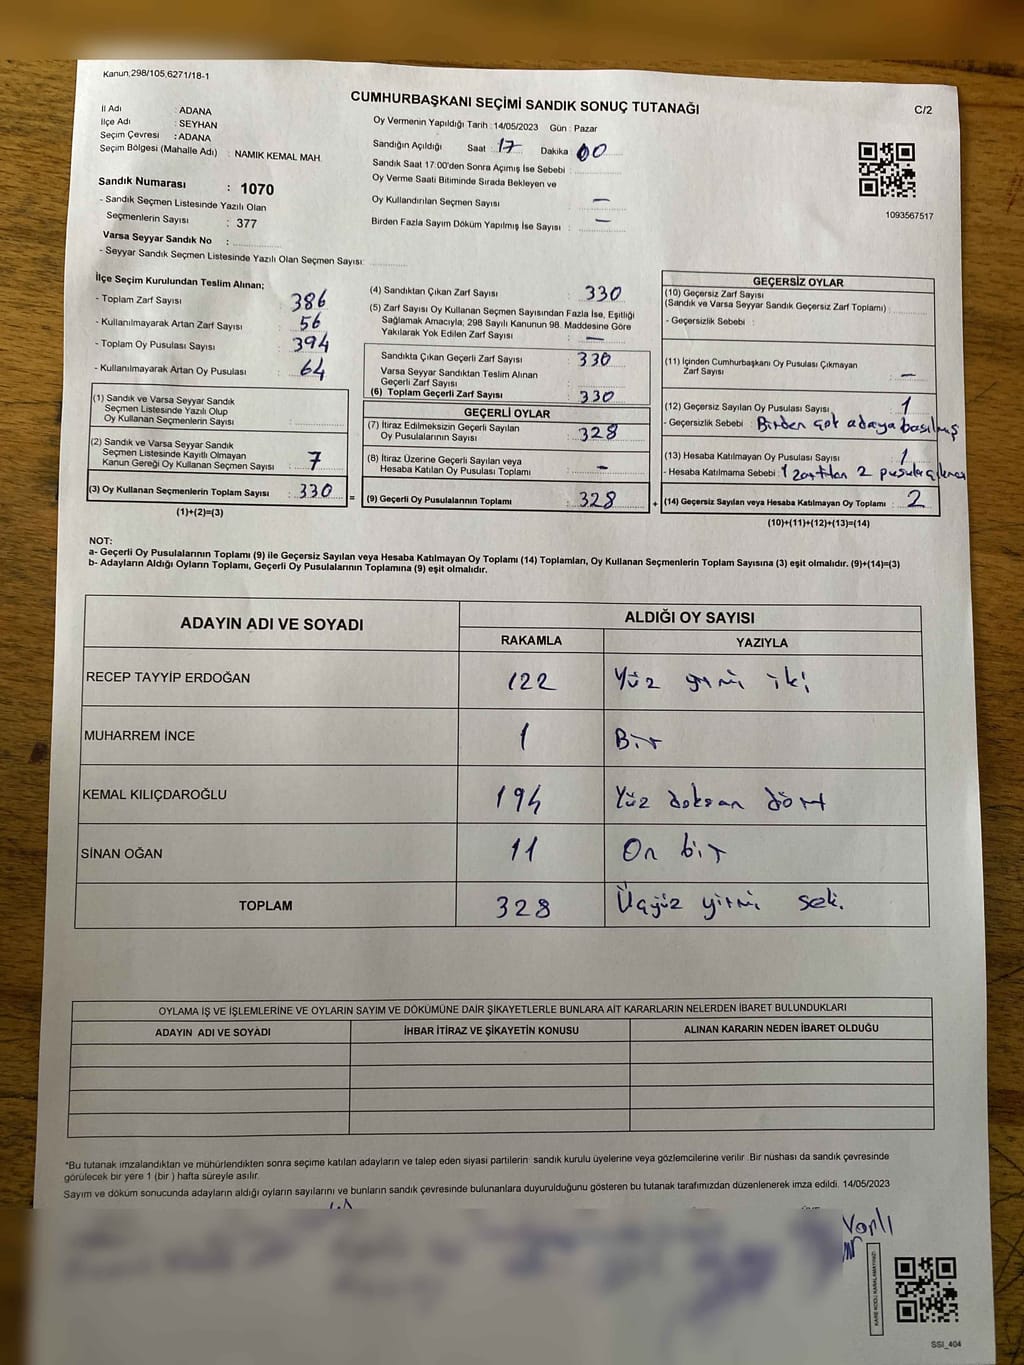 Kanun,298/105,6271/18-1
CUMHURBAŞKANI SEÇİMİ SANDIK SONUÇ TUTANAĞI
C/2
İl Adı : ADANA
İlçe Adı : SEYHAN
Seçim Çevresi : ADANA
Seçim Bölgesi (Mahalle Adı) : NAMIK KEMAL MAH.
Sandık Numarası : 1070
- Sandık Seçmen Listesinde Yazılı Olan
Seçmenlerin Sayısı : 377
Varsa Seyyar Sandık No :
- Seyyar Sandık Seçmen Listesinde Yazılı Olan Seçmen Sayısı:
Oy Vermenin Yapıldığı Tarih : 14/05/2023 Gün : Pazar
Sandığın Açıldığı Saat 17 Dakika 00
Sandık Saat 17:00'den Sonra Açımış İse Sebebi :
Oy Verme Saati Bitiminde Sırada Bekleyen ve
Oy Kullandırılan Seçmen Sayısı : —
Birden Fazla Sayım Döküm Yapılmış İse Sayısı : —
1093567517
İlçe Seçim Kurulundan Teslim Alınan;
- Toplam Zarf Sayısı : 386
- Kullanılmayarak Artan Zarf Sayısı : 56
- Toplam Oy Pusulası Sayısı : 394
- Kullanılmayarak Artan Oy Pusulası : 64
(1) Sandık ve Varsa Seyyar Sandık
Seçmen Listesinde Yazılı Olup
Oy Kullanan Seçmenlerin Sayısı :
(2) Sandık ve Varsa Seyyar Sandık
Seçmen Listesinde Kayıtlı Olmayan
Kanun Gereği Oy Kullanan Seçmen Sayısı : 7
(3) Oy Kullanan Seçmenlerin Toplam Sayısı : 330 =
(1)+(2)=(3)
(4) Sandıktan Çıkan Zarf Sayısı : 330
(5) Zarf Sayısı Oy Kullanan Seçmen Sayısından Fazla İse, Eşitliği
Sağlamak Amacıyla, 298 Sayılı Kanunun 98. Maddesine Göre
Yakılarak Yok Edilen Zarf Sayısı : —
Sandıkta Çıkan Geçerli Zarf Sayısı : 330
Varsa Seyyar Sandıktan Teslim Alınan
Geçerli Zarf Sayısı :
(6) Toplam Geçerli Zarf Sayısı : 330
GEÇERLİ OYLAR
(7) İtiraz Edilmeksizin Geçerli Sayılan
Oy Pusulalarının Sayısı : 328
(8) İtiraz Üzerine Geçerli Sayılan veya
Hesaba Katılan Oy Pusulası Toplamı : —
(9) Geçerli Oy Pusulalarının Toplamı : 328 +
GEÇERSİZ OYLAR
(10) Geçersiz Zarf Sayısı
(Sandık ve Varsa Seyyar Sandık Geçersiz Zarf Toplamı) :
- Geçersizlik Sebebi :
(11) İçinden Cumhurbaşkanı Oy Pusulası Çıkmayan
Zarf Sayısı : —
(12) Geçersiz Sayılan Oy Pusulası Sayısı : 1
- Geçersizlik Sebebi : Birden çok adaya basılmış
(13) Hesaba Katılmayan Oy Pusulası Sayısı : 1
- Hesaba Katılmama Sebebi : 1 zarftan 2 pusula çıkması
(14) Geçersiz Sayılan veya Hesaba Katılmayan Oy Toplamı : 2
(10)+(11)+(12)+(13)=(14)
NOT:
a- Geçerli Oy Pusulalarının Toplamı (9) ile Geçersiz Sayılan veya Hesaba Katılmayan Oy Toplamı (14) Toplamları, Oy Kullanan Seçmenlerin Toplam Sayısına (3) eşit olmalıdır. (9)+(14)=(3)
b- Adayların Aldığı Oyların Toplamı, Geçerli Oy Pusulalarının Toplamına (9) eşit olmalıdır.
ADAYIN ADI VE SOYADI
ALDIĞI OY SAYISI
RAKAMLA YAZIYLA
RECEP TAYYİP ERDOĞAN 122 Yüz yirmi iki
MUHARREM İNCE 1 Bir
KEMAL KILIÇDAROĞLU 194 Yüz doksan dört
SİNAN OĞAN 11 On bir
TOPLAM 328 Üçyüz yirmi seki.
OYLAMA İŞ VE İŞLEMLERİNE VE OYLARIN SAYIM VE DÖKÜMÜNE DAİR ŞİKAYETLERLE BUNLARA AİT KARARLARIN NELERDEN İBARET BULUNDUKLARI
ADAYIN ADI VE SOYADI İHBAR İTİRAZ VE ŞİKAYETİN KONUSU ALINAN KARARIN NEDEN İBARET OLDUĞU
*Bu tutanak imzalandıktan ve mühürlendikten sonra seçime katılan adayların ve talep eden siyasi partilerin sandık kurulu üyelerine veya gözlemcilerine verilir .Bir nüshası da sandık çevresinde
görülecek bir yere 1 (bir ) hafta süreyle asılır.
Sayım ve döküm sonucunda adayların aldığı oyların sayılarını ve bunların sandık çevresinde bulunanlara duyurulduğunu gösteren bu tutanak tarafımızdan düzenlenerek imza edildi. 14/05/2023
KARE KODU KARALAMAYINIZ!
SSI_404